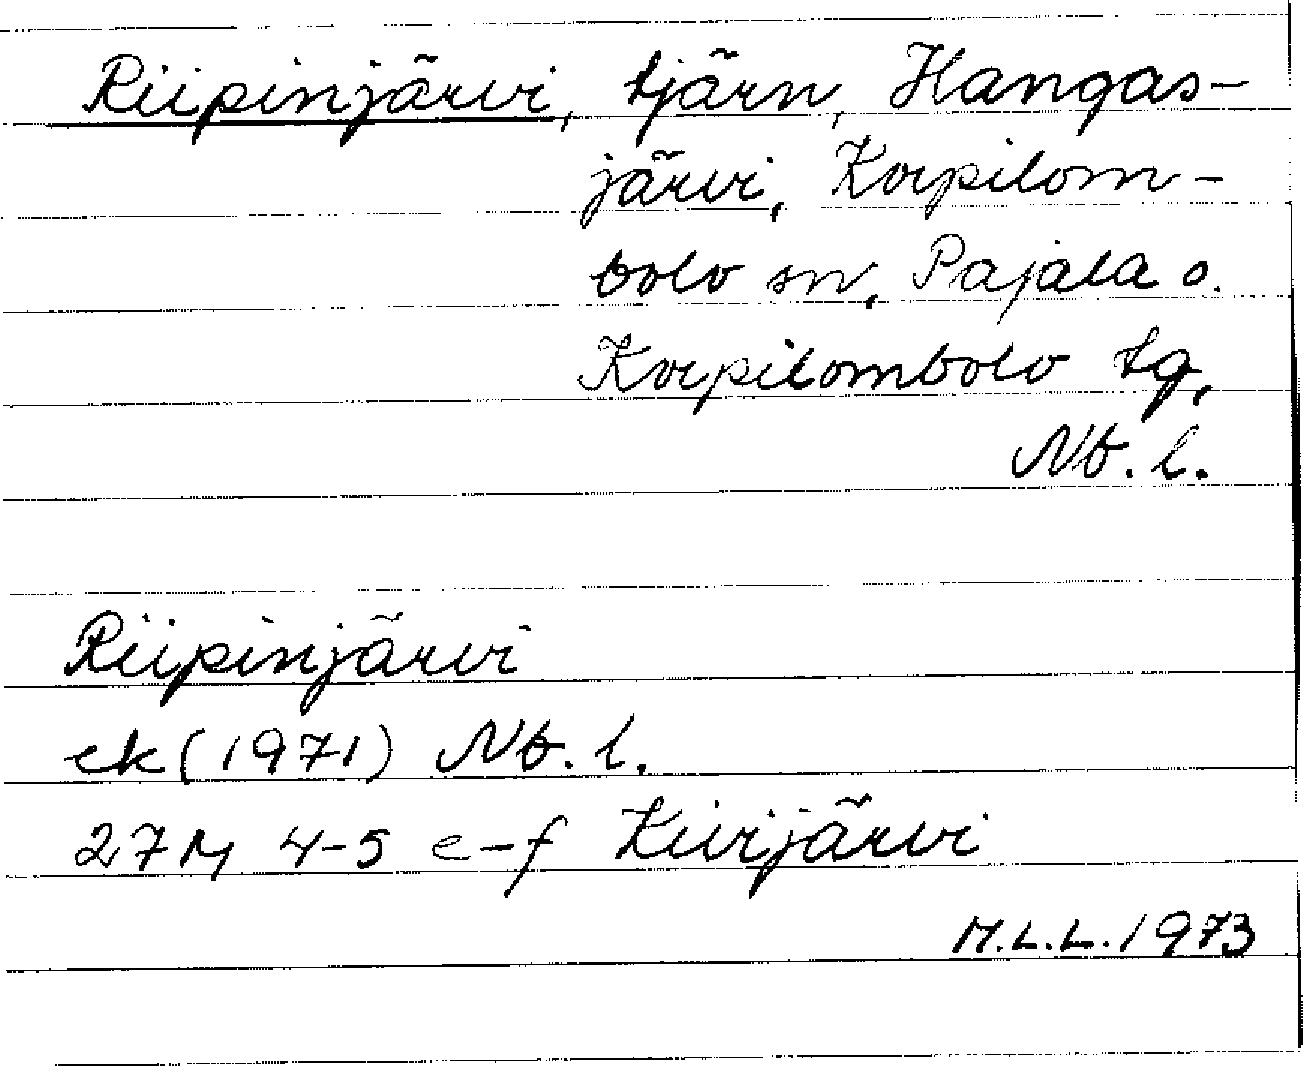 Riipinjärvi, tjärn, Hangas-
järvi, Korpilom-
bolo sn, Pajala o.
Korpilombolo tg,
Nb. l.
Riipinjärvi
ek (1971) Nb. l.
27M 4-5 e-f Kivijärvi
M.L.L. 1973